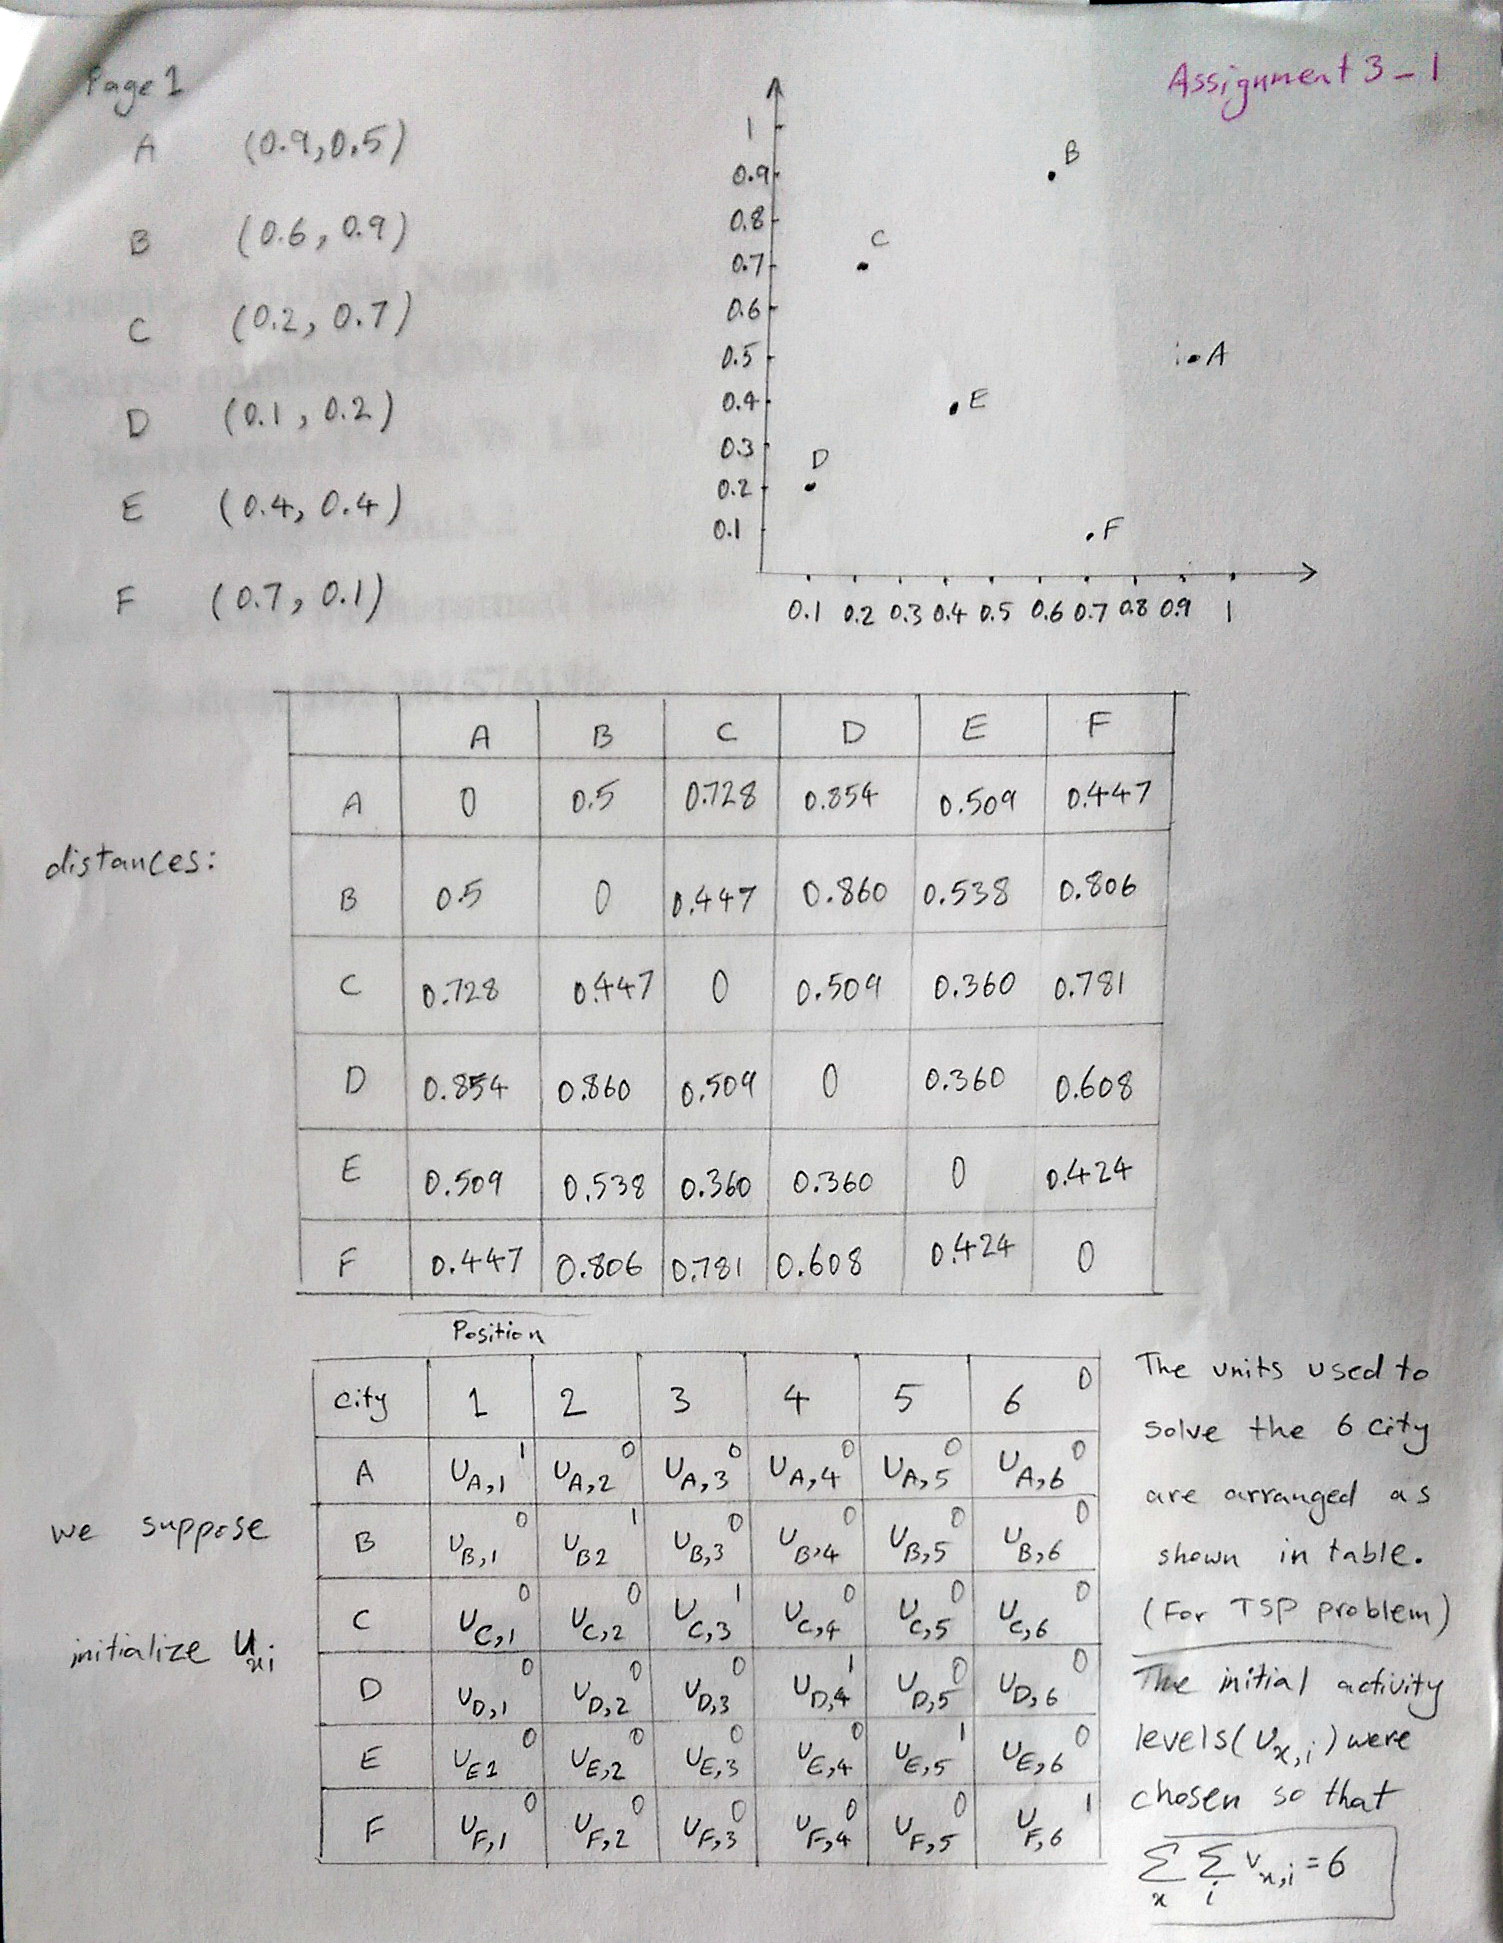 Page 1
Assignment 3-1
A (0.9, 0.5)
B (0.6, 0.9)
C (0.2, 0.7)
D (0.1, 0.2)
E (0.4, 0.4)
F (0.7, 0.1)
1
0.9
0.8
0.7
0.6
0.5
0.4
0.3
0.2
0.1
B
C
A
E
D
F
0.1 0.2 0.3 0.4 0.5 0.6 0.7 0.8 0.9 1
distances:
A B C D E F
A 0 0.5 0.728 0.854 0.509 0.447
B 0.5 0 0.447 0.860 0.538 0.806
C 0.728 0.447 0 0.509 0.360 0.781
D 0.854 0.860 0.509 0 0.360 0.608
E 0.509 0.538 0.360 0.360 0 0.424
F 0.447 0.806 0.781 0.608 0.424 0
Position
city 1 2 3 4 5 6 0
A U_A,1 1 U_A,2 0 U_A,3 0 U_A,4 0 U_A,5 0 U_A,6 0
B U_B,1 0 U_B2 1 U_B,3 0 U_B,4 0 U_B,5 0 U_B,6 0
C U_C,1 0 U_C,2 0 U_C,3 1 U_C,4 0 U_C,5 0 U_C,6 0
D U_D,1 0 U_D,2 0 U_D,3 0 U_D,4 1 U_D,5 0 U_D,6 0
E U_E1 0 U_E,2 0 U_E,3 0 U_E,4 0 U_E,5 1 U_E,6 0
F U_F,1 0 U_F,2 0 U_F,3 0 U_F,4 0 U_F,5 0 U_F,6 1
we suppose
initialize U_xi
The units used to
solve the 6 city
are arranged as
shown in table.
(For TSP problem)
The initial activity
levels (U_x,i) were
chosen so that
∑_x ∑_i v_x,i = 6